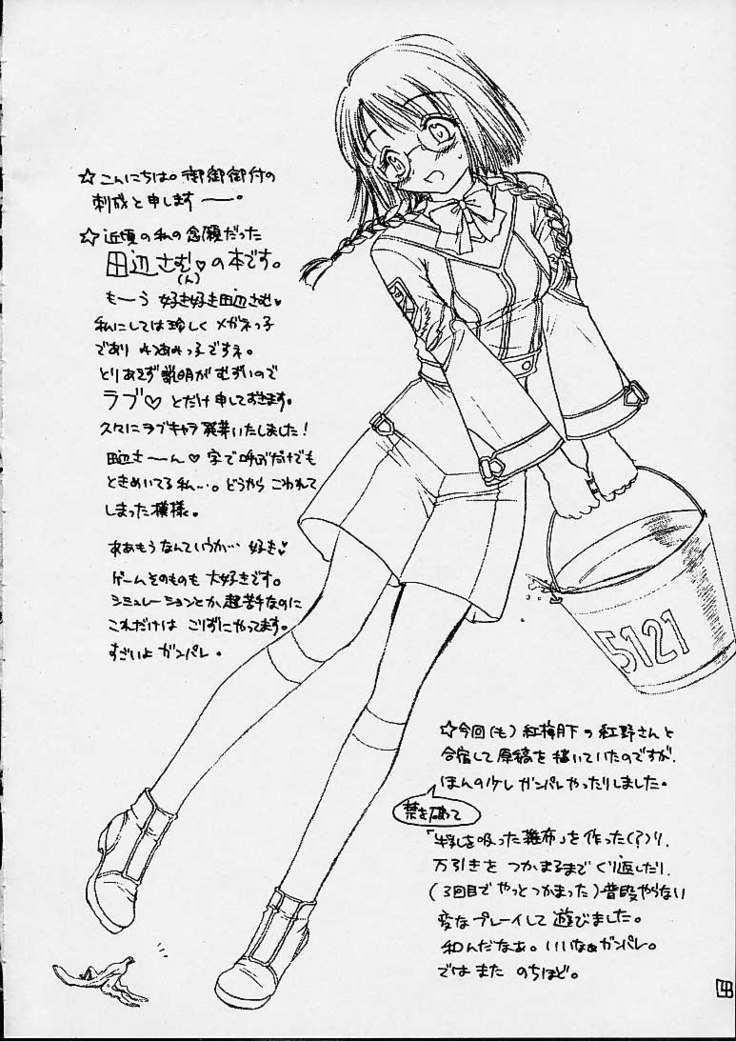 ☆こんにちは。御御御付の
刺成と申しますーー。
☆近頃の私の念願だった
田辺さむ♡の本です。
(ん)
もーう 好き好き田辺さむ♥
私にしては珍しく メガネっ子
であり みつあみっ子ですネ。
とりあえず説明がむずいので
ラブ♡ とだけ申しておきます。
久々にラブキャラ発芽いたしました!
田辺さーん♡字で呼ぶだけでも
ときめいてる私…。どうやら こわれて
しまった模様。
ああもうなんていうか… 好き♥
ゲームそのものも 大好きです。
シミュレーションとか超苦手なのに
これだけは こりずにやってます。
すごいよ ガンパレ。
5121
☆今回(も)紅梅月下の紅野さんと
合宿して原稿を描いていたのですが、
ほんの少し ガンパレやったりしました。
禁を破って
「牛乳を吸った雑布」を作った(?)り、
万引きを つかまるまで くり返したり、
(3回目で やっとつかまった)普段やらない
変なプレイして 遊びました。
和んだなぁ。いいなぁガンパレ。
では また のちほど。